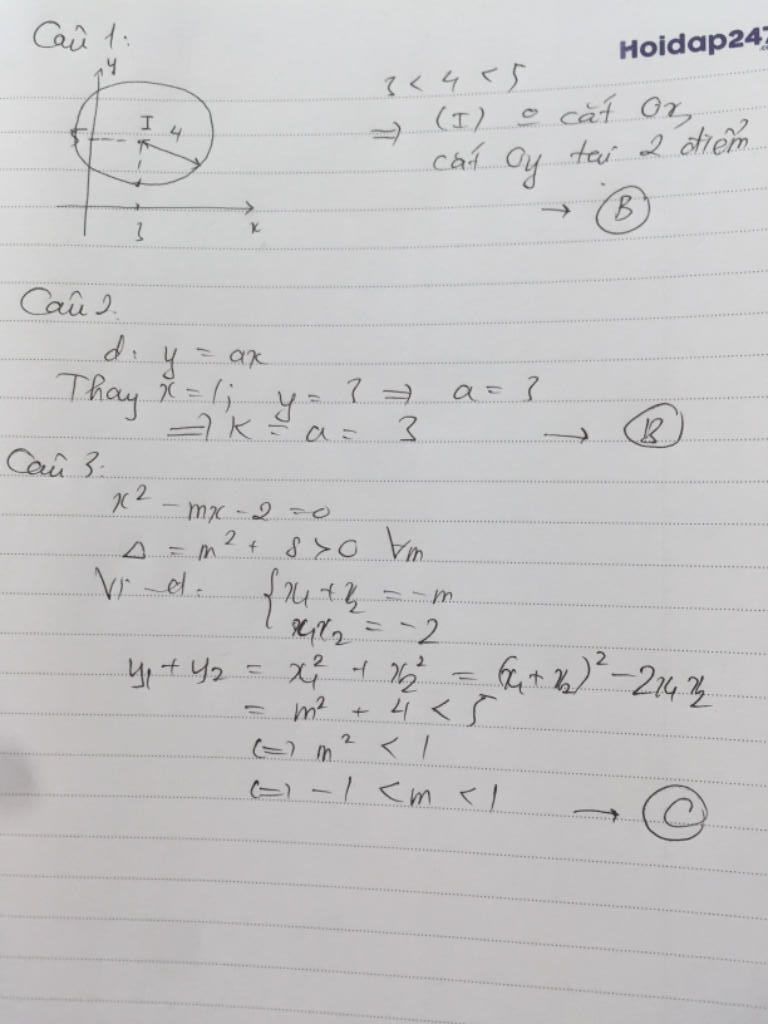 Câu 1:
Hoidap247
y
I
4
5
3
x
3 < 4 < 5
=> (I) 0 cắt Ox,
cắt Oy tại 2 điểm
→ B
Câu 2.
d: y = ax
Thay x = 1; y = 3 => a = 3
=> K = a = 3 → B
Câu 3:
x² - mx - 2 = 0
Δ = m² + 8 > 0 ∀m
Vi-et: { x₁ + x₂ = -m
x₁x₂ = -2
y₁ + y₂ = x₁² + x₂² = (x₁ + x₂)² - 2x₁x₂
= m² + 4 < 5
<=> m² < 1
<=> -1 < m < 1 → C